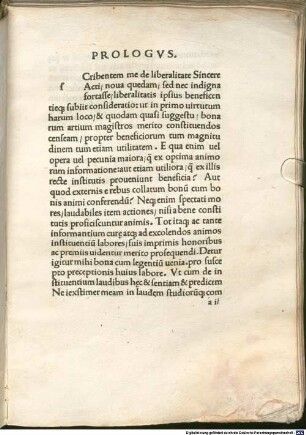 PROLOGVS.
Cribentem me de liberalitate Sincere
f Acti/noua quedam/sed nec indigna
fortasse/liberalitatis ipsius beneficen
tieq; subiit consideratio: ut in primo uirtutum
harum loco/& quodam quasi suggestu/bona
rum artium magistros merito constituendos
censeam/propter beneficiorum tum magnitu
dinem tum etiam utilitatem. E qua enim uel
opera uel pecunia maiora/q̃ ex optima animo
rum informatione aut etiam utiliora/q̃ ex illis
recte institutis proueniunt beneficia? Aut
quod externis e rebus collatum bonũ cum bo
nis animi conferendũ? Neq; enim spectati mo
res/laudabiles item actiones/nisi a bene consti
tutis proficiscuntur animis. Tot itaq; ac tante
informantium cure atq; ad excolendos animos
instituentiũ labores/suis imprimis honoribus
ac premiis uidentur merito prosequendi. Detur
igitur mihi bona cum legentiũ uenia. pro susce
pto preceptionis huius labore. Vt cum de in
stituentium laudibus hęc & sentiam & predicem
Ne iexstimer meam in laudem studiorũq; com
a ii